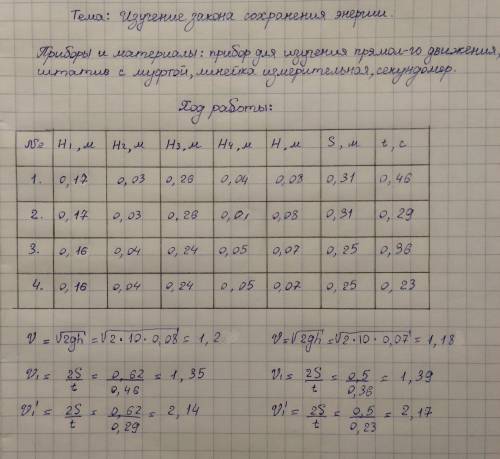 Тема: Изучение закона сохранения энергии.
Приборы и материалы: прибор для изучения прямол-го движения,
штатив с муфтой, линейка измерительная, секундомер.
Ход работы:
№ H₁, м H₂, м H₃, м H₄, м H, м S, м t, c
1. 0,17 0,03 0,26 0,04 0,08 0,31 0,46
2. 0,17 0,03 0,26 0,08 0,31 0,29
3. 0,16 0,04 0,24 0,05 0,07 0,25 0,36
4. 0,16 0,04 0,24 0,05 0,07 0,25 0,23
V = √2gh = √2·10·0,08 = 1,2
V₁ = 2S/t = 0,62/0,46 = 1,35
V₁' = 2S/t = 0,62/0,29 = 2,14
V = √2gh = √2·10·0,07 = 1,18
V₁ = 2S/t = 0,5/0,36 = 1,39
V₁' = 2S/t = 0,5/0,23 = 2,17